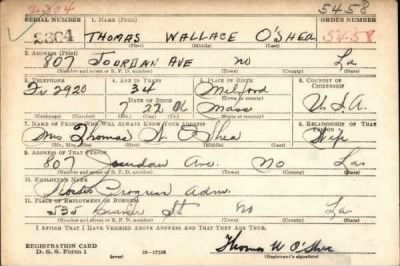 2304 5458
SERIAL NUMBER 1. NAME (Print) ORDER NUMBER
2304 THOMAS WALLACE O'SHEA 5458
(First) (Middle) (Last)
2. ADDRESS (Print)
807 JOURDAN AVE NO La
(Number and street or R. F. D. number) (Town) (County) (State)
3. TELEPHONE 4. AGE IN YEARS 5. PLACE OF BIRTH 6. COUNTRY OF CITIZENSHIP
2920 34 Milford U.S.A.
DATE OF BIRTH
7 22 06 Mass
(Mo.) (Day) (Yr.) (State or country)
7. NAME OF PERSON WHO WILL ALWAYS KNOW YOUR ADDRESS 8. RELATIONSHIP OF THAT PERSON
Mrs Thomas W. O'Shea Wife
(Mr., Mrs., Miss) (First) (Middle) (Last)
9. ADDRESS OF THAT PERSON
807 Jourdan Ave. No La
(Number and street or R. F. D. number) (Town) (County) (State)
10. EMPLOYER'S NAME
Works Progress Adm.
11. PLACE OF EMPLOYMENT OR BUSINESS
535 St No La
(Number and street or R. F. D. number) (Town) (County) (State)
I AFFIRM THAT I HAVE VERIFIED ABOVE ANSWERS AND THAT THEY ARE TRUE.
REGISTRATION CARD
D. S. S. Form 1 Thomas W O'Shea
(Registrant's signature)